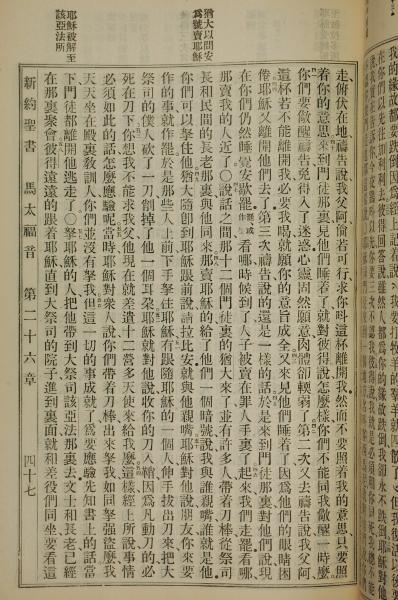 猶大以問安
為號賣耶穌
耶穌被解至
該亞法所
走俯伏在地禱告說我父阿倘若可行求你呌這杯離開我然而不要照着我的意思只要照
着你的意思來到門徒那裏見他們睡着了就對彼得說怎麼樣你們不能同我儆醒一時麼
你們要儆醒禱告免得入了迷惑心靈固然願意肉體卻輭弱了第二次又去禱告說我父阿
這杯若不能離開我必要我喝就願你的意旨成全又來見他們睡着了因爲他們的眼睛困
倦耶穌又離開他們去了第三次禱告說的還是一樣的話於是來到門徒那裏對他們說現
在你們仍然睡覺安歇罷看哪時候到了人子被賣在罪人手裏了起來我們走罷看哪
那賣我的人近了〇說話之間那十二個門徒裏的猶大來了並有許多人帶着刀棒從祭司
長和民間的長老那裏與他同來那賣耶穌的給了他們一個暗號說我與誰親嘴誰就是他
你們可以拏住他猶大隨卽到耶穌跟前說請拉比安就與他親嘴耶穌對他說朋友你來要
作的事就作罷於是那些人上前下手拏住耶穌有跟隨耶穌的一個人伸手拔出刀來把大
祭司的僕人砍了一刀削掉了他一個耳朶耶穌就對他說收你的刀入鞘因爲凡動刀的必
死在刀下你想我不能求我父他現在就差遣十二營多天使來給我麼這樣經上所說事情
必須如此的話怎麼應驗呢當時耶穌對衆人說你們帶着刀棒出來拏我如同拏強盜麼我
天天坐在殿裏敎訓人你們並沒有拏我但這一切的事成就了爲要應驗先知書上的話當
下門徒都離開他逃走了〇拏耶穌的人把他帶到大祭司該亞法那裏去文士和長老已經
在那裏聚會彼得遠遠的跟着耶穌直到大祭司的院子進到裏面就和差役們同坐要看這
新約聖書 馬太福音 第二十六章 四十七